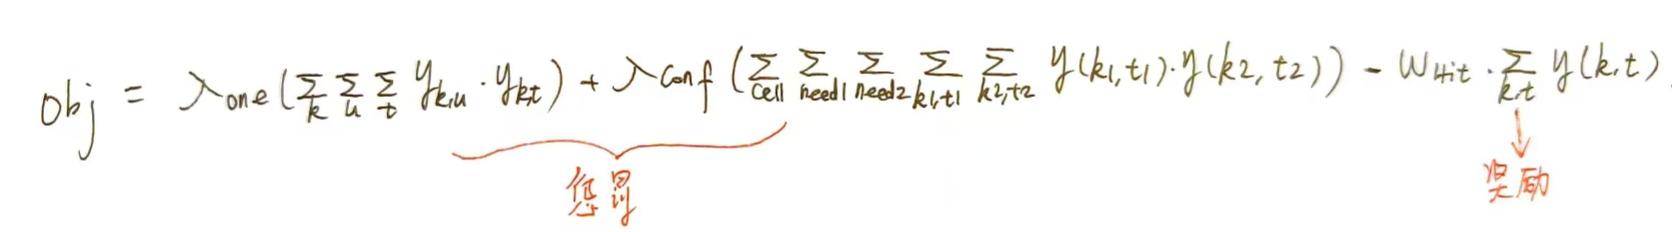 Obj = λone(∑k ∑u ∑t yk,u · yk,t) + λconf (∑cell ∑need1 ∑need2 ∑k1,t1 ∑k2,t2 y(k1,t1)·y(k2,t2)) - WHit · ∑k,t y(k,t)
惩罚 奖励